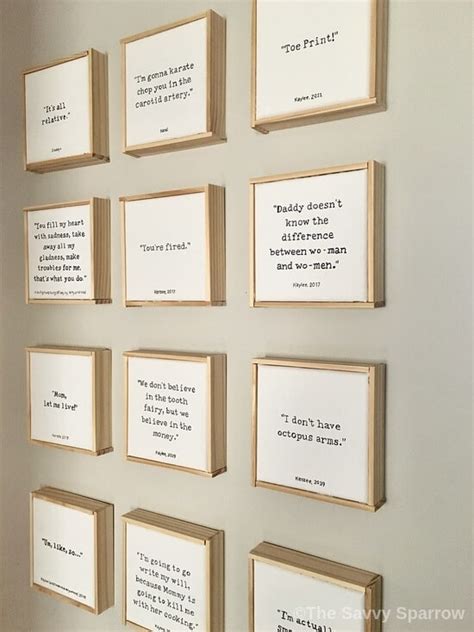 "It's all
relative."
"I'm gonna karate
chop you in the
carotid artery."
"Toe Print!"
Kaylee, 2011
"You fill my heart
with sadness, take
away all my
gladness, make
troubles for me.
that's what you do."
"You're fired."
2017
"Daddy doesn't
know the
difference
between wo-man
and wo-men."
Kaylee, 2017
"Mom,
let me live!"
2019
"We don't believe
in the tooth
fairy, but we
believe in the
money."
Kaylee, 2019
"I don't have
octopus arms."
2019
"Um, like, so..."
"I'm going to go
write my will,
because Mommy is
going to kill me
with her cooking."
"I'm actually
©The Savvy Sparrow